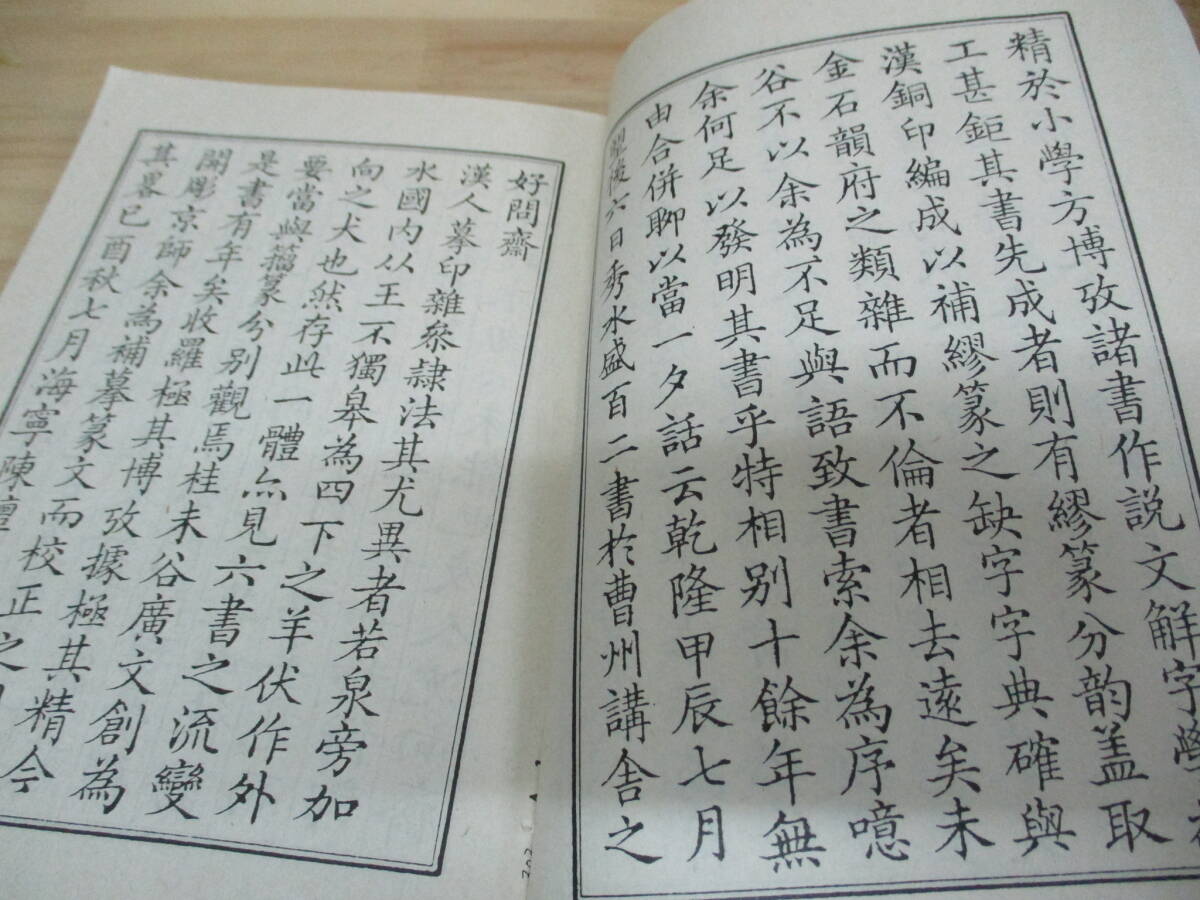 精於小學方博攷諸書作説文解字學
工甚鉅其書先成者則有繆篆分韵盖取
漢銅印編成以補繆篆之缺字字典確與
金石韻府之類雜而不倫者相去遠矣未
谷不以余為不足與語致書索余為序噫
余何足以發明其書乎特相别十餘年無
由合併聊以當一夕話云乾隆甲辰七月
後六日秀水盛百二書於曹州講舍之
好問齋
漢人摹印雜叅隷法其尤異者若泉旁加
水國内从王不獨皋為四下之羊伏作外
向之犬也然存此一體亦見六書之流變
要當與籀篆分别觀焉桂未谷廣文創為
是書有年矣收羅極其博攷據極其精今
開彫京師余為補摹篆文而校正之
其畧己酉秋七月海寧陳鱣